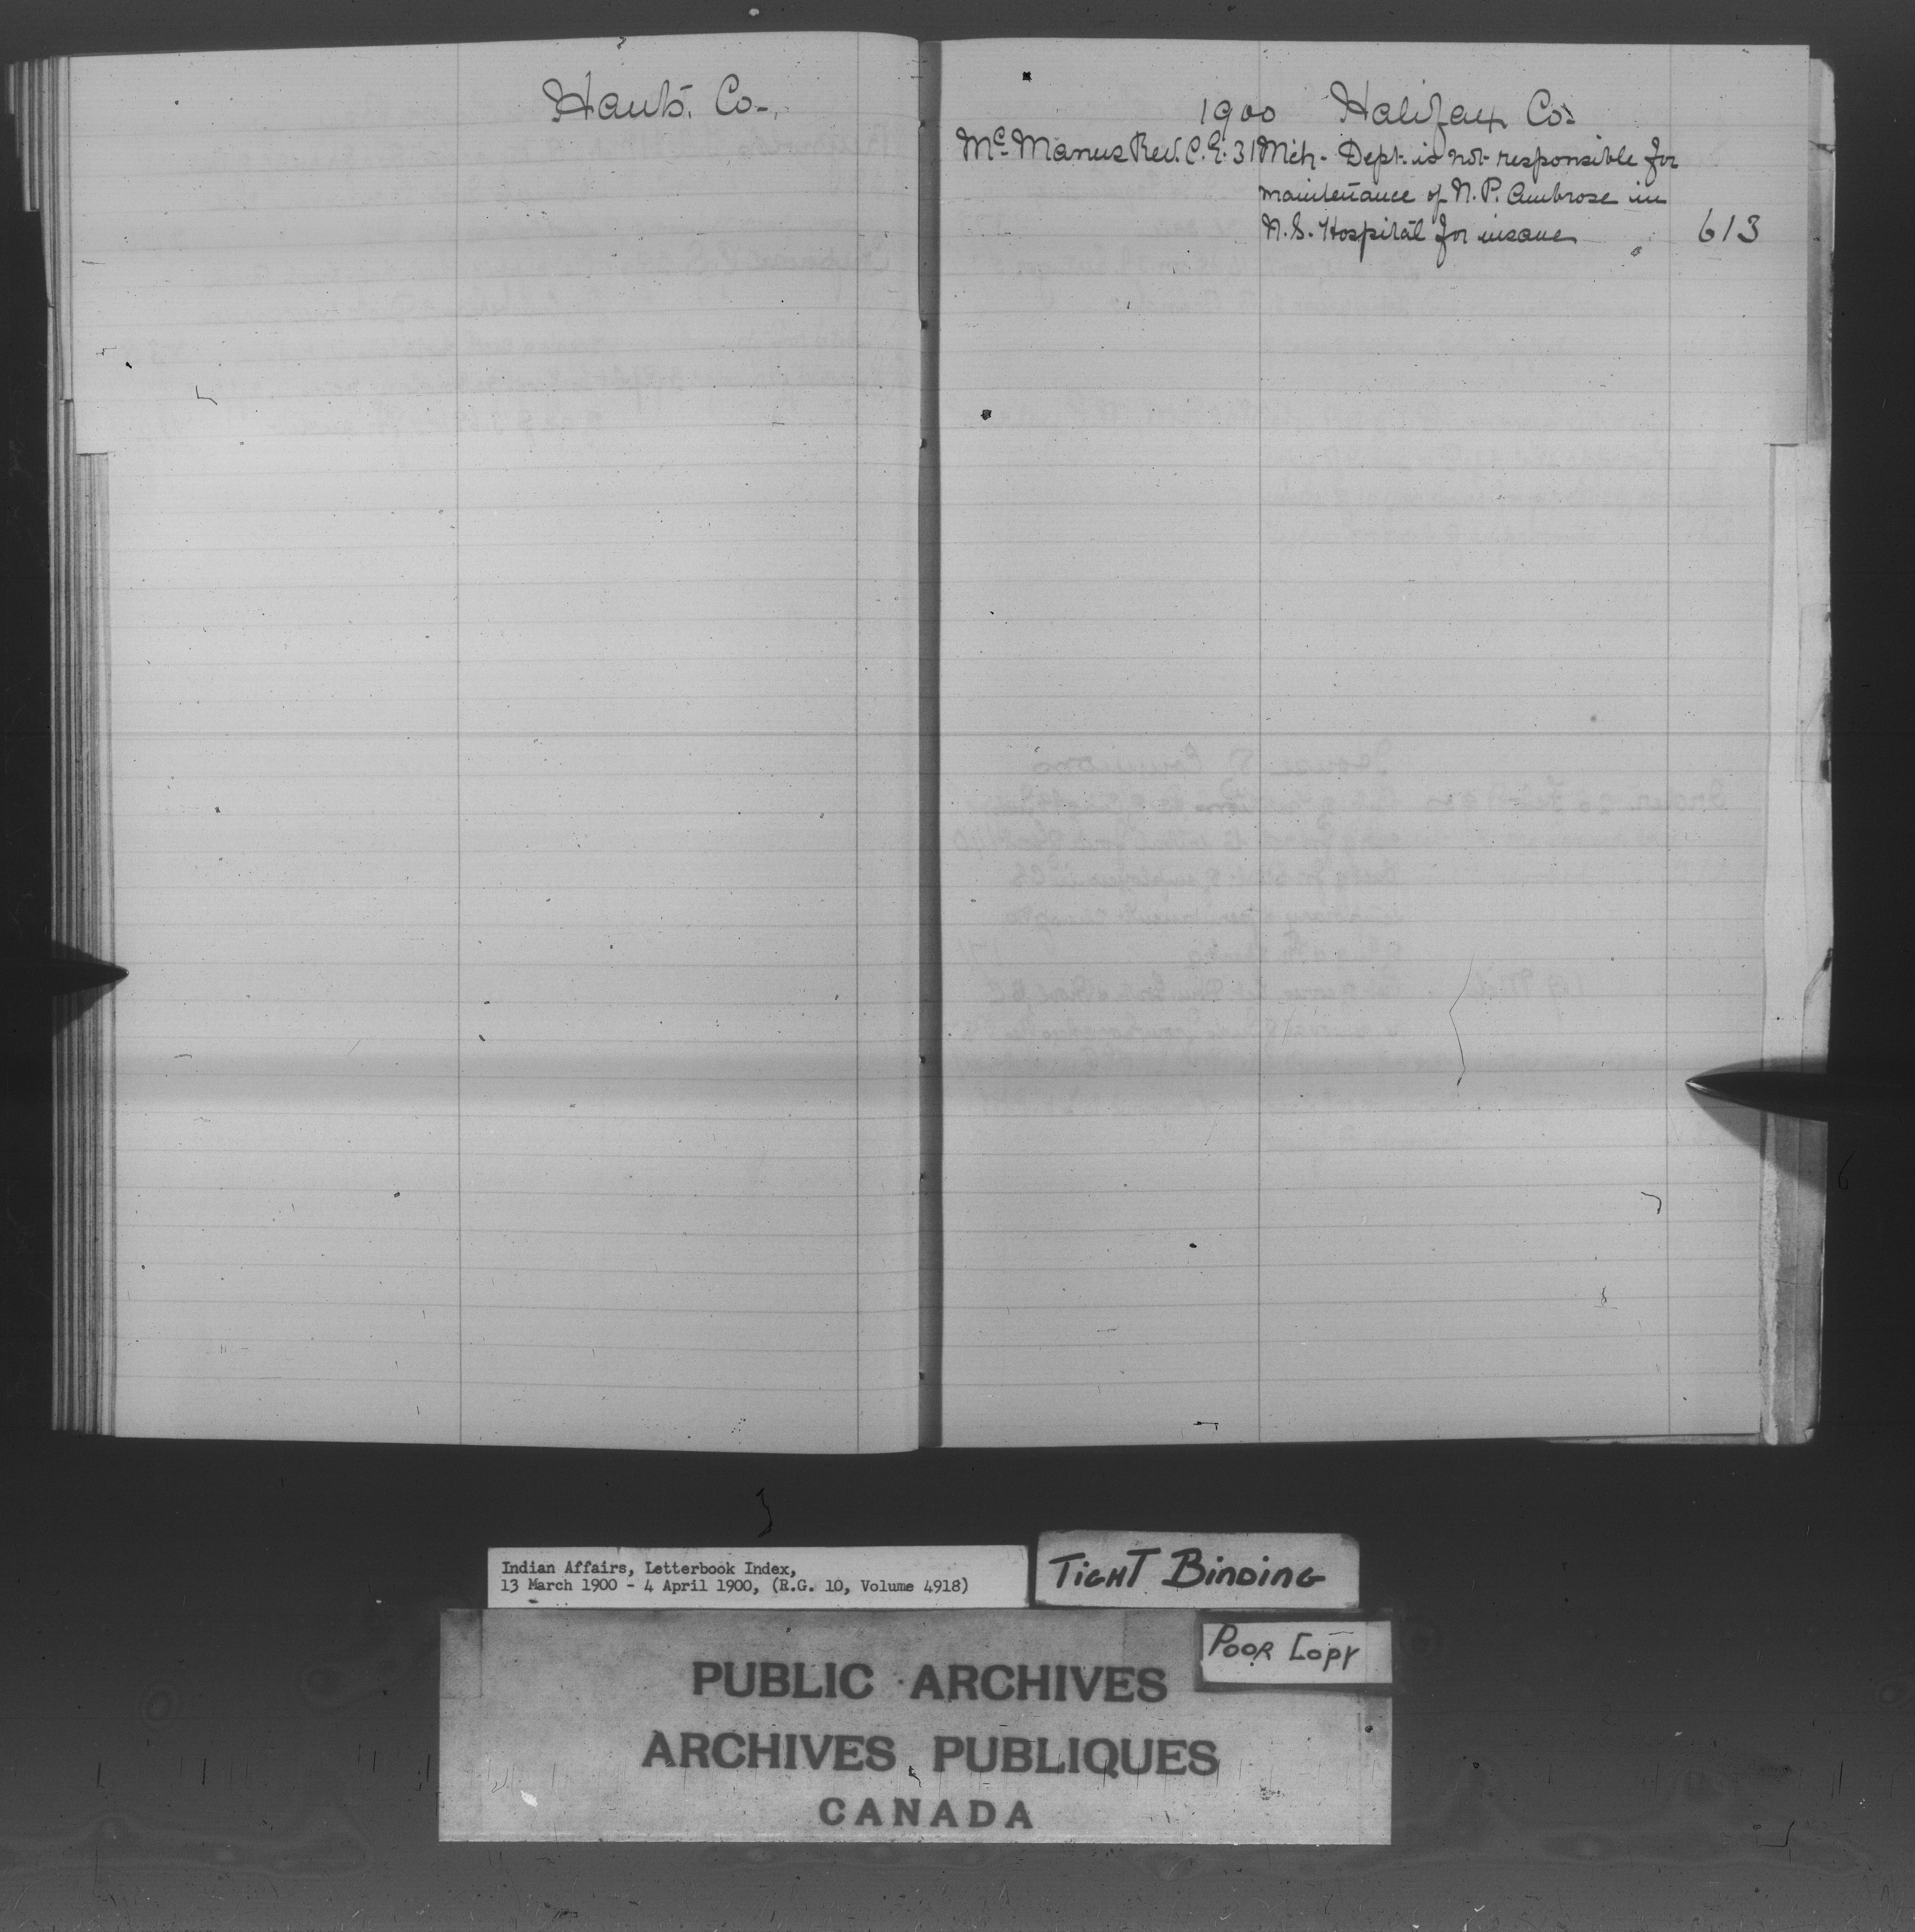 Hants. Co.
1900 Halifax Co.
McManus Rev. C.E. 31 Mch. Dept. is not responsible for
maintenance of N. P. Ambrose in
N.S. Hospital for insane " 613
Indian Affairs, Letterbook Index,
13 March 1900 - 4 April 1900, (R.G. 10, Volume 4918)
TIGHT BINDING
POOR COPY
PUBLIC ARCHIVES
ARCHIVES PUBLIQUES
CANADA